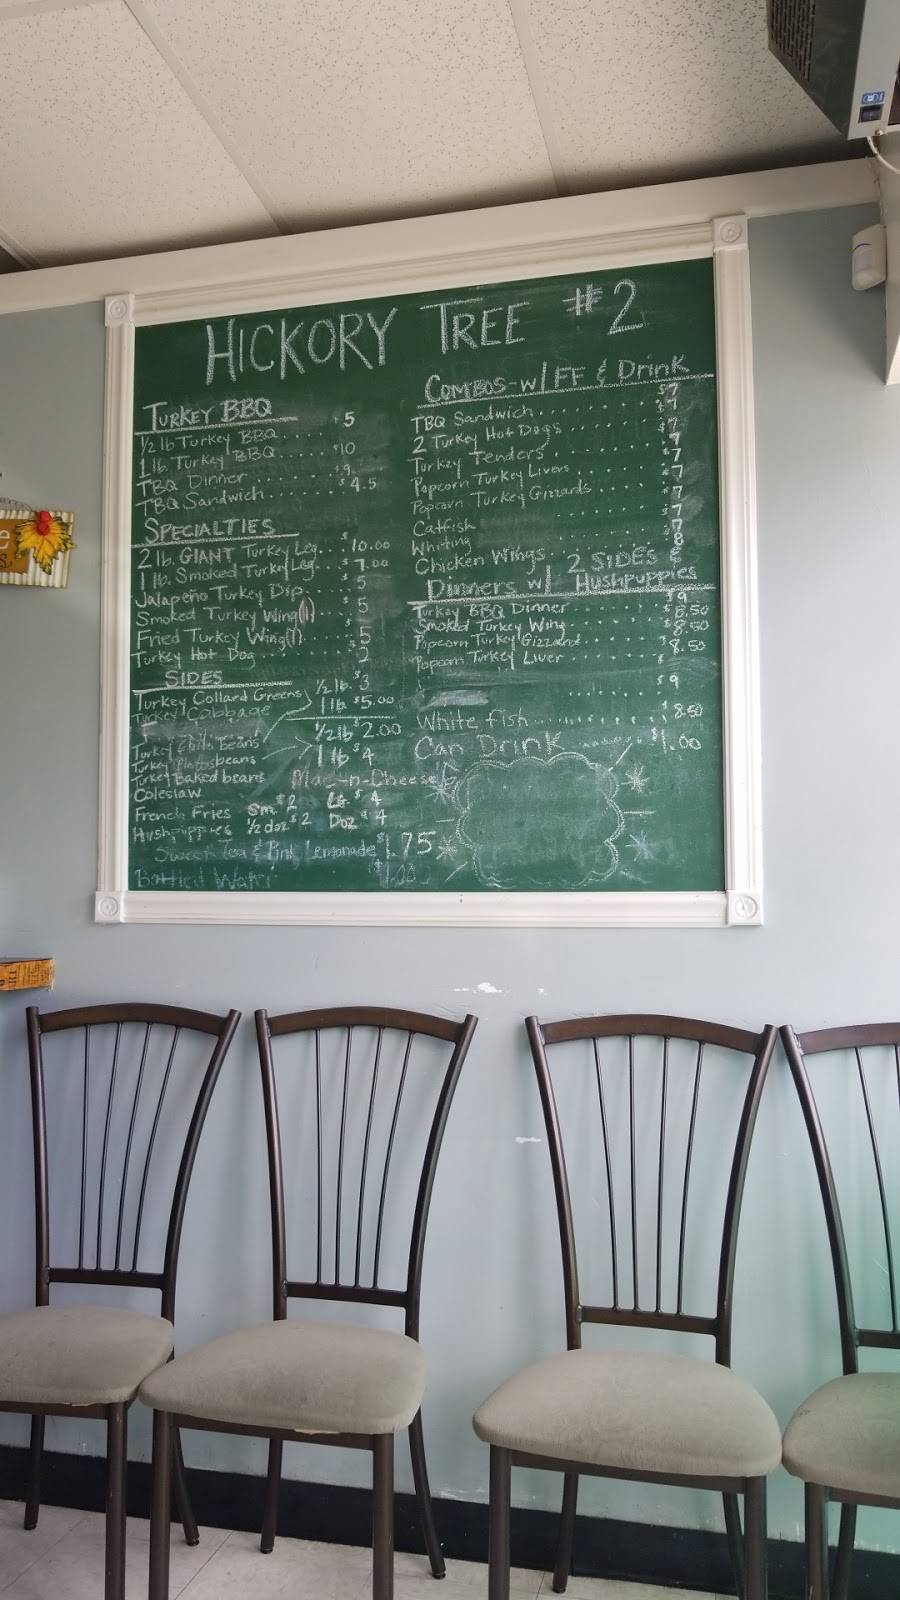 HICKORY TREE #2
TURKEY BBQ
1/2 lb Turkey BBQ..... $5
1 lb. Turkey BBQ...... $10
TBQ Dinner........ $9
TBQ Sandwich........ $4.5
SPECIALTIES
2 lb. GIANT Turkey Leg... $10.00
1 lb. Smoked Turkey Leg... $7.00
Jalapeño Turkey Dip. $5
Smoked Turkey Wing(1) $5
Fried Turkey Wing(1)... $5
Turkey Hot Dog....... $2
SIDES
Turkey Collard Greens 1/2 lb. $3
Turkey Cabbage 1 lb $5.00
Turkey beans 1/2 lb $2.00
Turkey beans 1 lb $4
Turkey Baked beans Mac-n-Cheese
Coleslaw
French Fries Sm $2 Lg. $4
Hushpuppies 1/2 doz $2 Doz $4
Sweet Tea & Pink Lemonade $1.75
Bottled Water $1.00
COMBOS-w/FF & Drink
TBQ Sandwich........ $7
2 Turkey Hot Dogs....... 7
Turkey Tenders....... 7
Popcorn Turkey Livers.... 7
Popcorn Turkey Gizzards.... 7
Catfish 7
Whiting 7
Chicken Wings....... 8
Dinners w/ 2 SIDES & Hushpuppies
Turkey BBQ Dinner....... $9
Smoked Turkey Wing...... $8.50
Popcorn Turkey Gizzard..... $8.50
Popcorn Turkey Liver...... $8.50
....... $9
White fish.......... $8.50
Can Drink....... $1.00